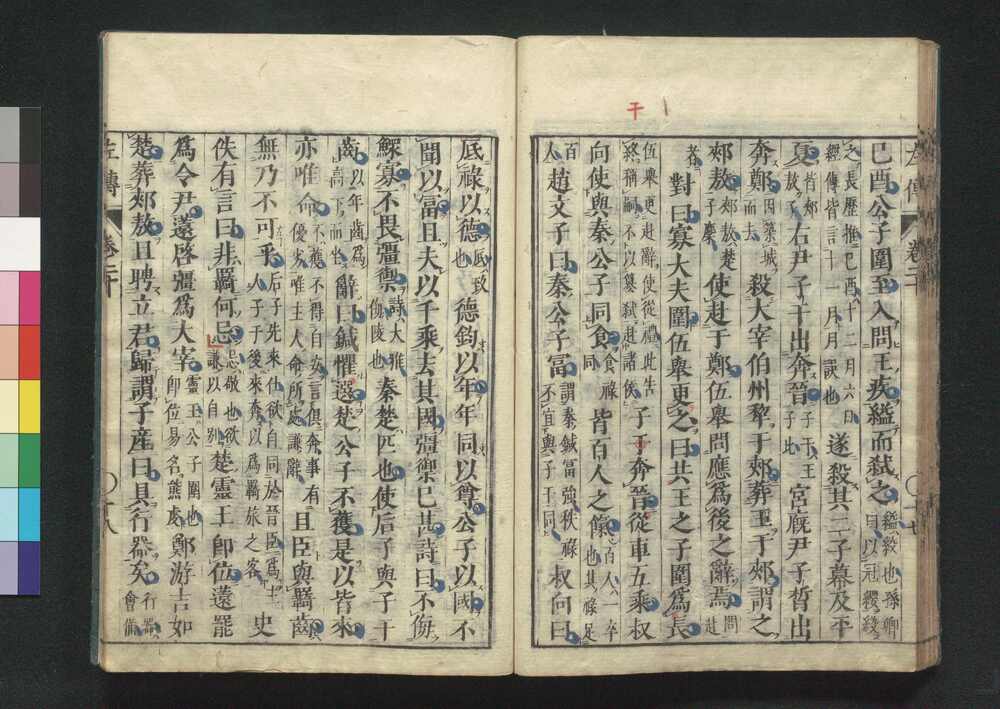 左傳 卷二十 ○十七
己酉公子圍至入問王疾縊而弒之縊絞也孫卿曰以冠纓絞
之長歷推己酉十二月六日經傳皆言十一月月誤也遂殺其二子幕及平
夏皆郟敖子右尹子干出奔晉子干王子比宮廄尹子皙出
奔鄭因築城而去殺大宰伯州犂于郟葬王于郟謂之
郟敖郟敖楚子麇使赴于鄭伍舉問應爲後之辭焉問赴
者對曰寡大夫圍伍舉更之曰共王之子圍爲長
伍舉更赴辭使從禮此告終稱嗣不以篡弒赴諸侯子干奔晉從車五乘叔
向使與秦公子同食食祿同皆百人之餼百人一卒也其祿足
百人趙文子曰秦公子富謂秦鍼富強秩祿不宜與子干同叔向曰
干
底祿以德底致也德鈞以年年同以尊公子以國不
聞以富且夫以千乘去其國彊禦已甚詩曰不侮
鰥寡不畏彊禦詩大雅侮陵也秦楚匹也使后子與子干
齒以年齒爲高下而坐辭曰鍼懼選楚公子不獲是以皆來
亦唯命不獲不得自安言俱奔事有優劣唯主人命所處謙辭且臣與羇齒
無乃不可乎后子先來仕欲自同於晉臣爲主人子干後來奔以爲羇旅之客史
佚有言曰非羇何忌忌敬也欲謙以自別楚靈王卽位薳罷
爲令尹薳啓彊爲大宰靈王公子圍也卽位易名熊虔鄭游吉如
楚葬郟敖且聘立君歸謂子產曰具行器矣行器會備
左傳 卷二十 ○十八